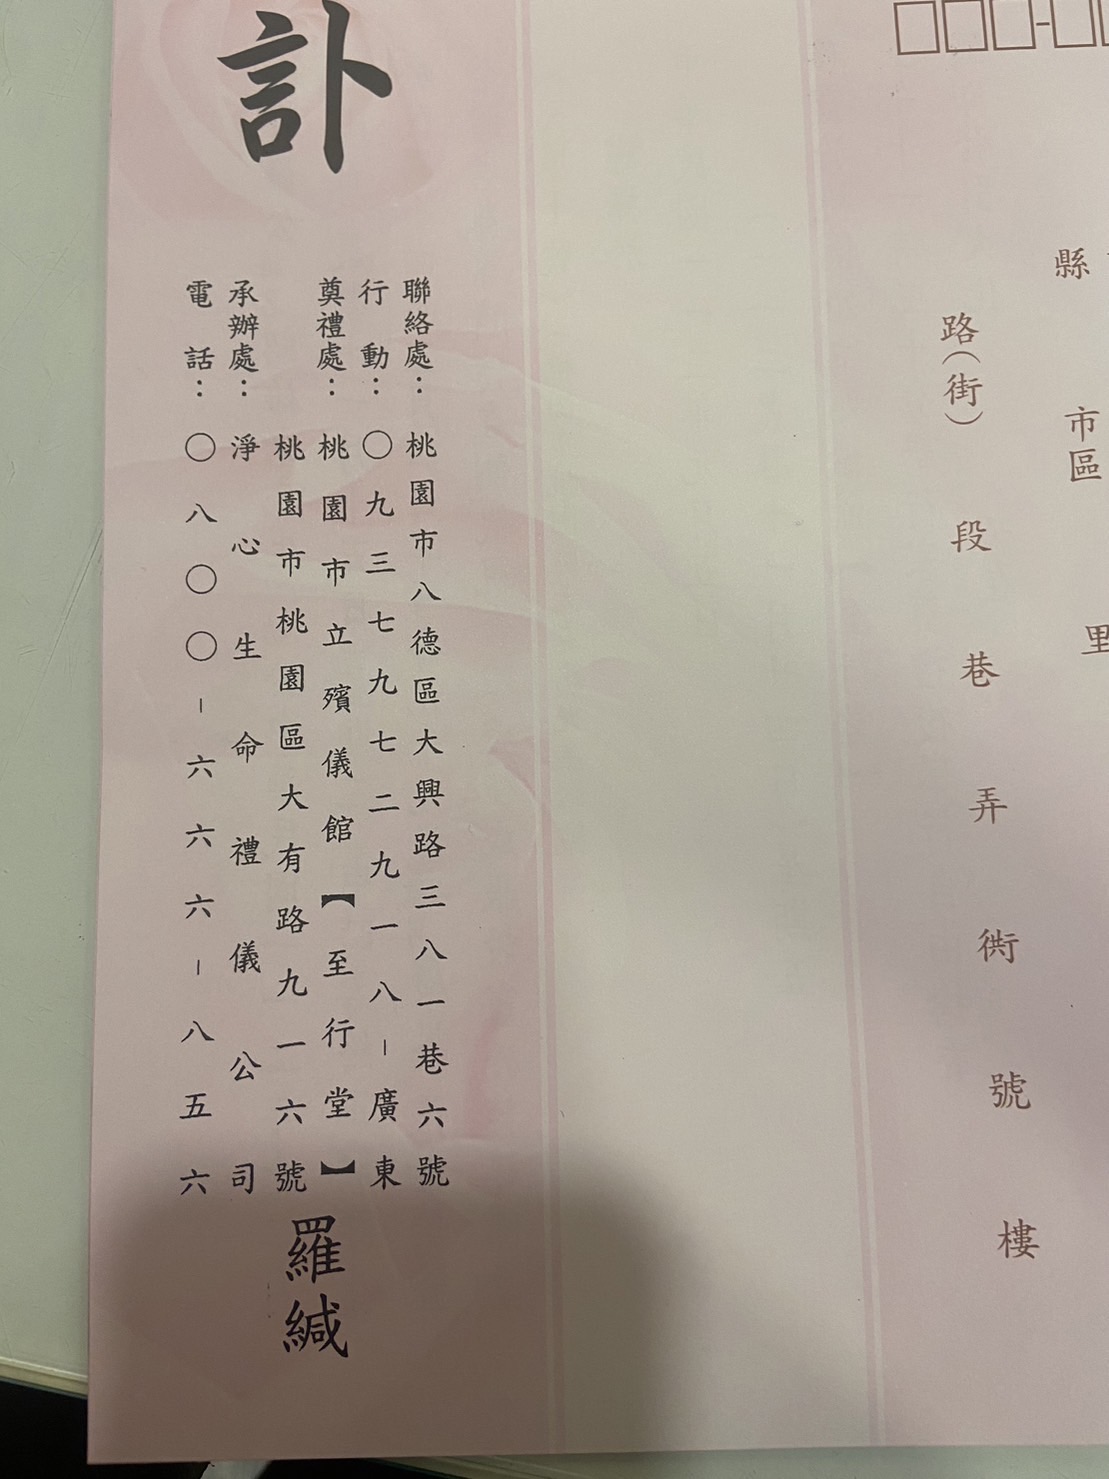 縣
市區
里
路（街）　段　巷　弄　衖　號　樓
訃
聯絡處：桃園市八德區大興路三八一巷六號
行動：〇九三七九七二九一八－廣東
奠禮處：桃園市立殯儀館【至行堂】
桃園市桃園區大有路九一六號
承辦處：淨心生命禮儀公司
電話：〇八〇〇－六六六－八五六
羅緘